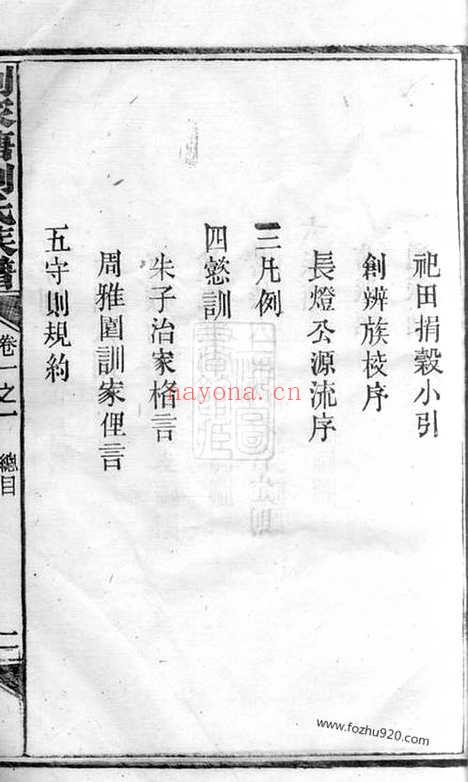 祀田捐穀小引
創辨族校序
長燈公源流序
三凡例
四懿訓
朱子治家格言
周雅園訓家俚言
五守則規約
劉氏族譜
卷一之一
總目
nayona.cn
www.fozhu920.com